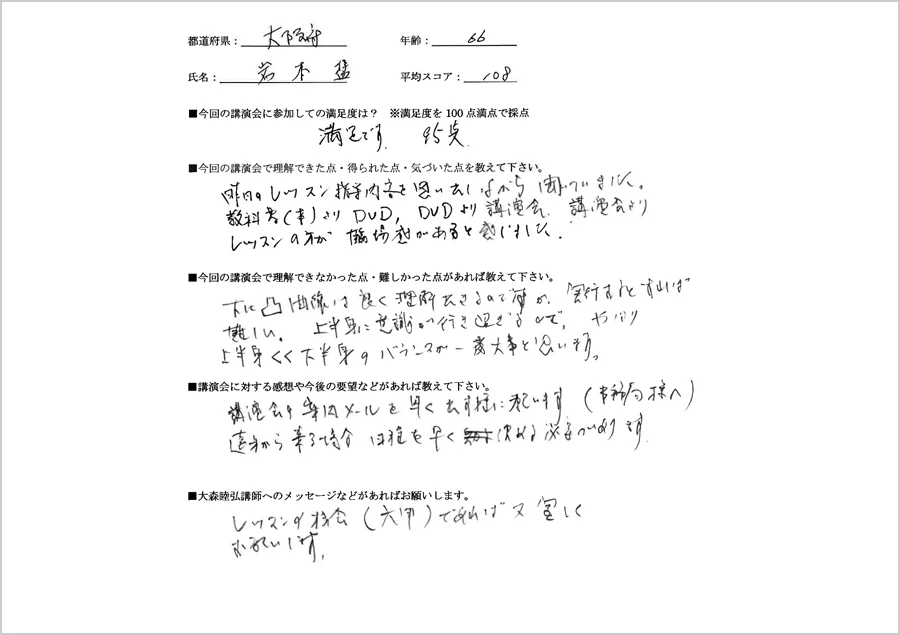 都道府県： 大阪府 年齢： 66
氏名： 岩本 猛 平均スコア： 108
■今回の講演会に参加しての満足度は？ ※満足度を100点満点で採点
満足です。 95点
■今回の講演会で理解できた点・得られた点・気づいた点を教えて下さい。
昨日のレッスン指導内容を思い出しながら聞いていました。
教科書（本）より DVD, DVDより 講演会、講演会より
レッスンの方が 臨場感があると感じました。
■今回の講演会で理解できなかった点・難しかった点があれば教えて下さい。
凸曲線は良く理解出きるのですが、実行するとすれば
難しい。上半身に意識が行き過ぎるので、やはり
上半身くく下半身のバランスが一番大事と思います。
■講演会に対する感想や今後の要望などがあれば教えて下さい。
講演会の案内メールを早く出す様に願います（事務局様へ）
遠方から来る場合 日程を早く 決める必要があります。
■大森睦弘講師へのメッセージなどがあればお願いします。
レッスンの機会（六甲）であれば又 宜しく
お願いします。